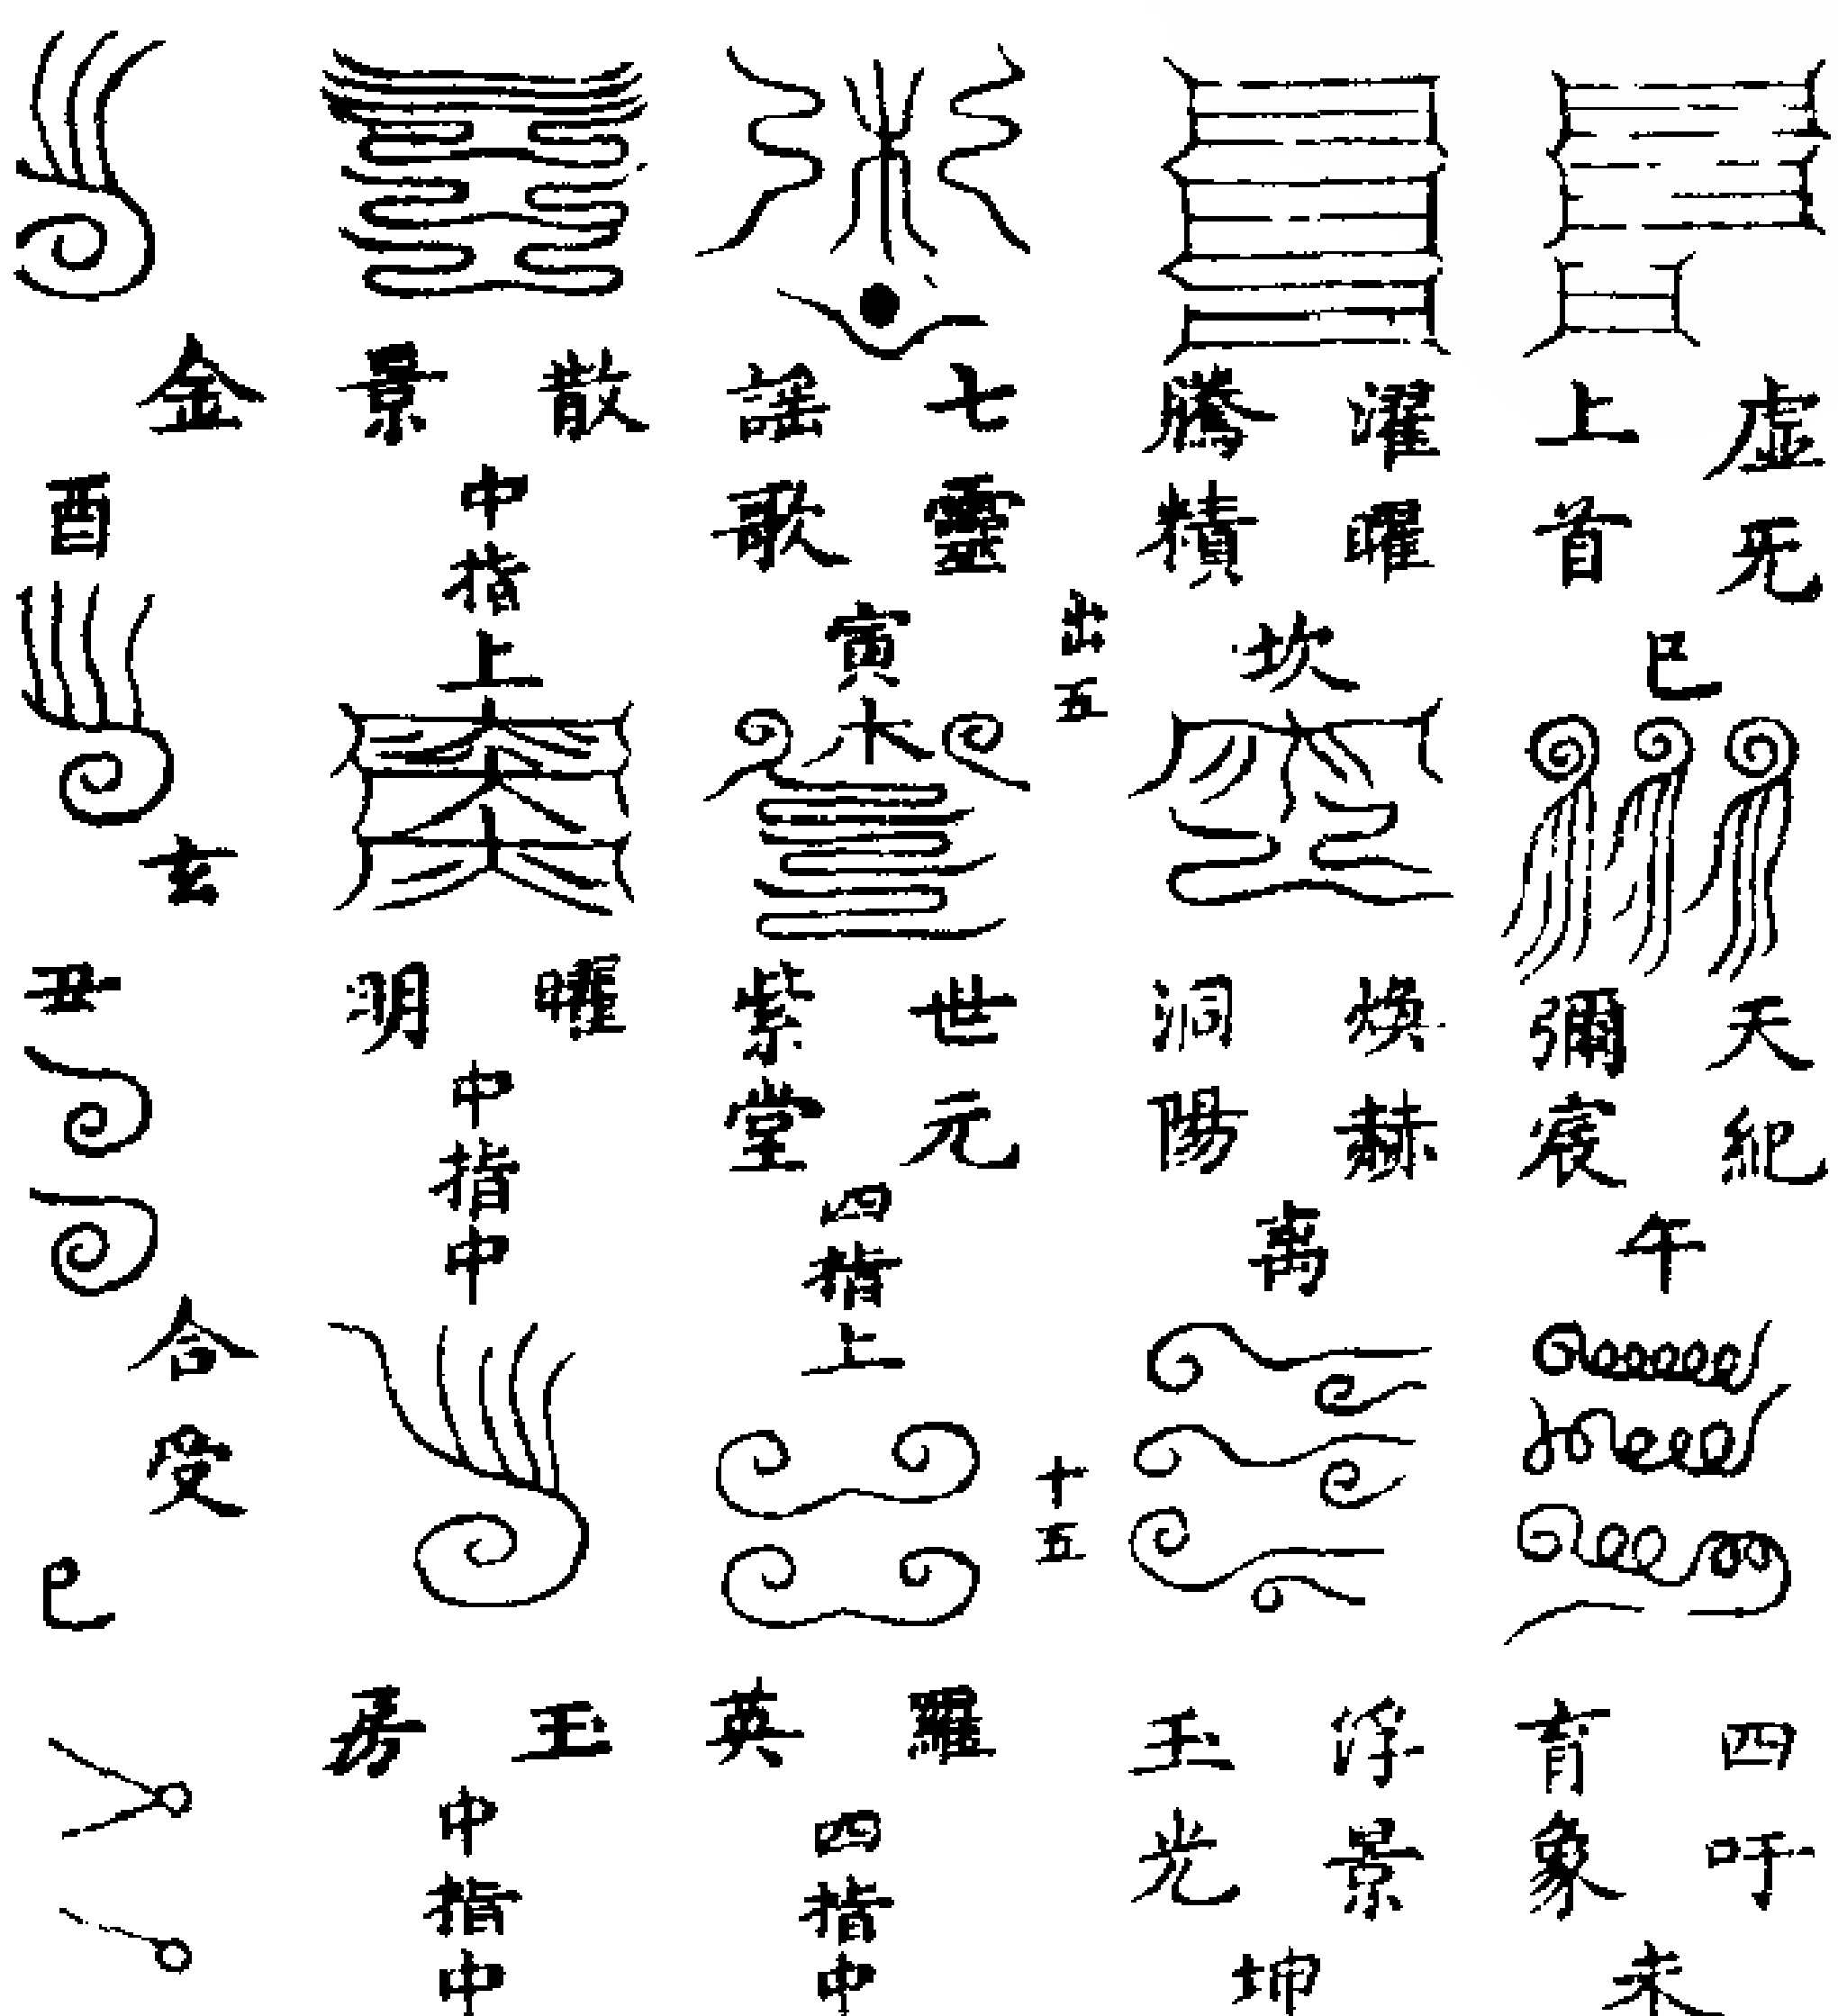 虛无
上首
巳
天紀
彌宸
午
四吁
育象
未
濯曜
騰積
坎
煥赫
洞陽
离
浮景
玉光
坤
出五
十五
七靈
謠歌
寅
世元
紫堂
四指上
羅
英
四指中
散
景
中指上
曜
明
中指中
玉
房
中指中
金
酉
玄
丑
合受
巳